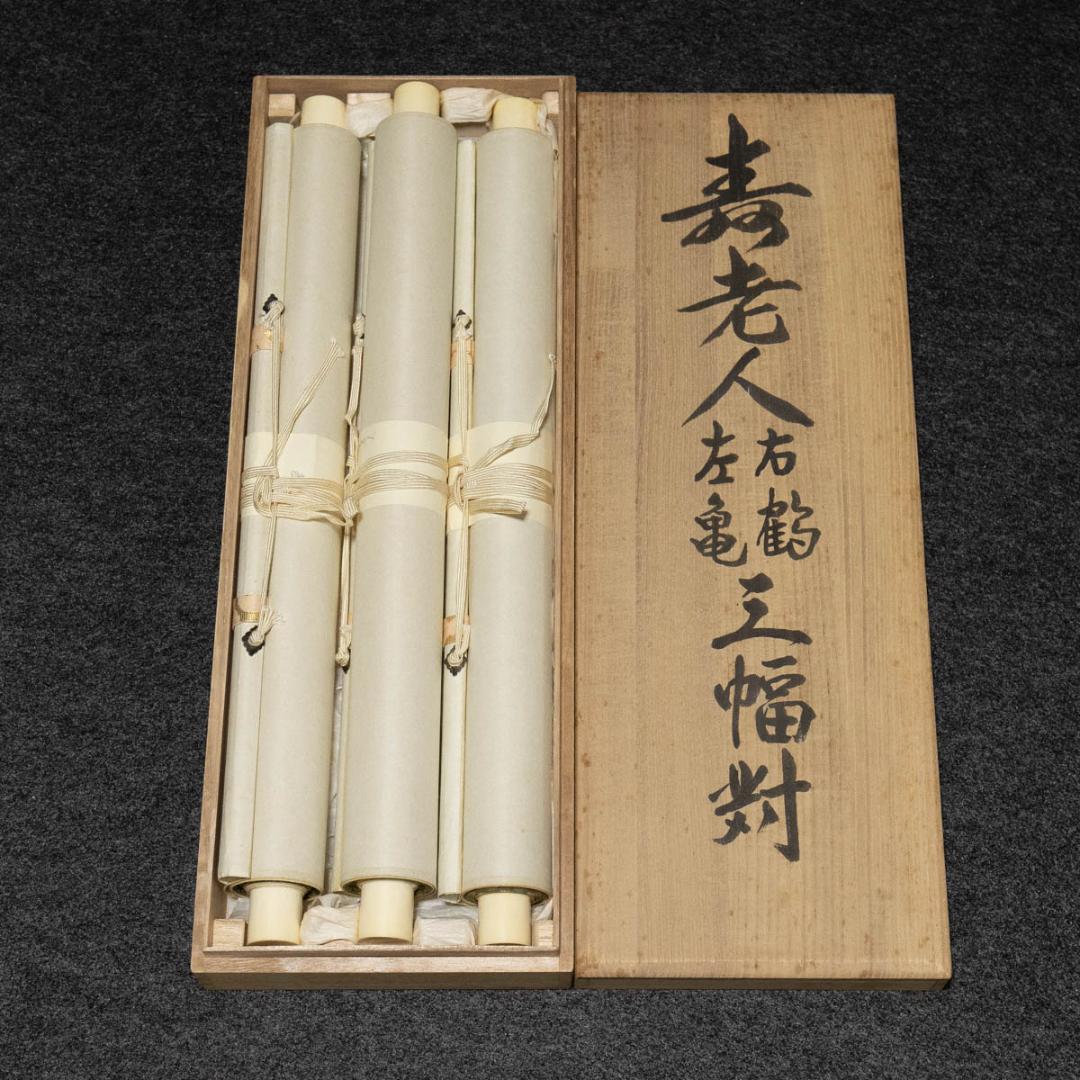 寿老人
右鶴
左亀
三幅対